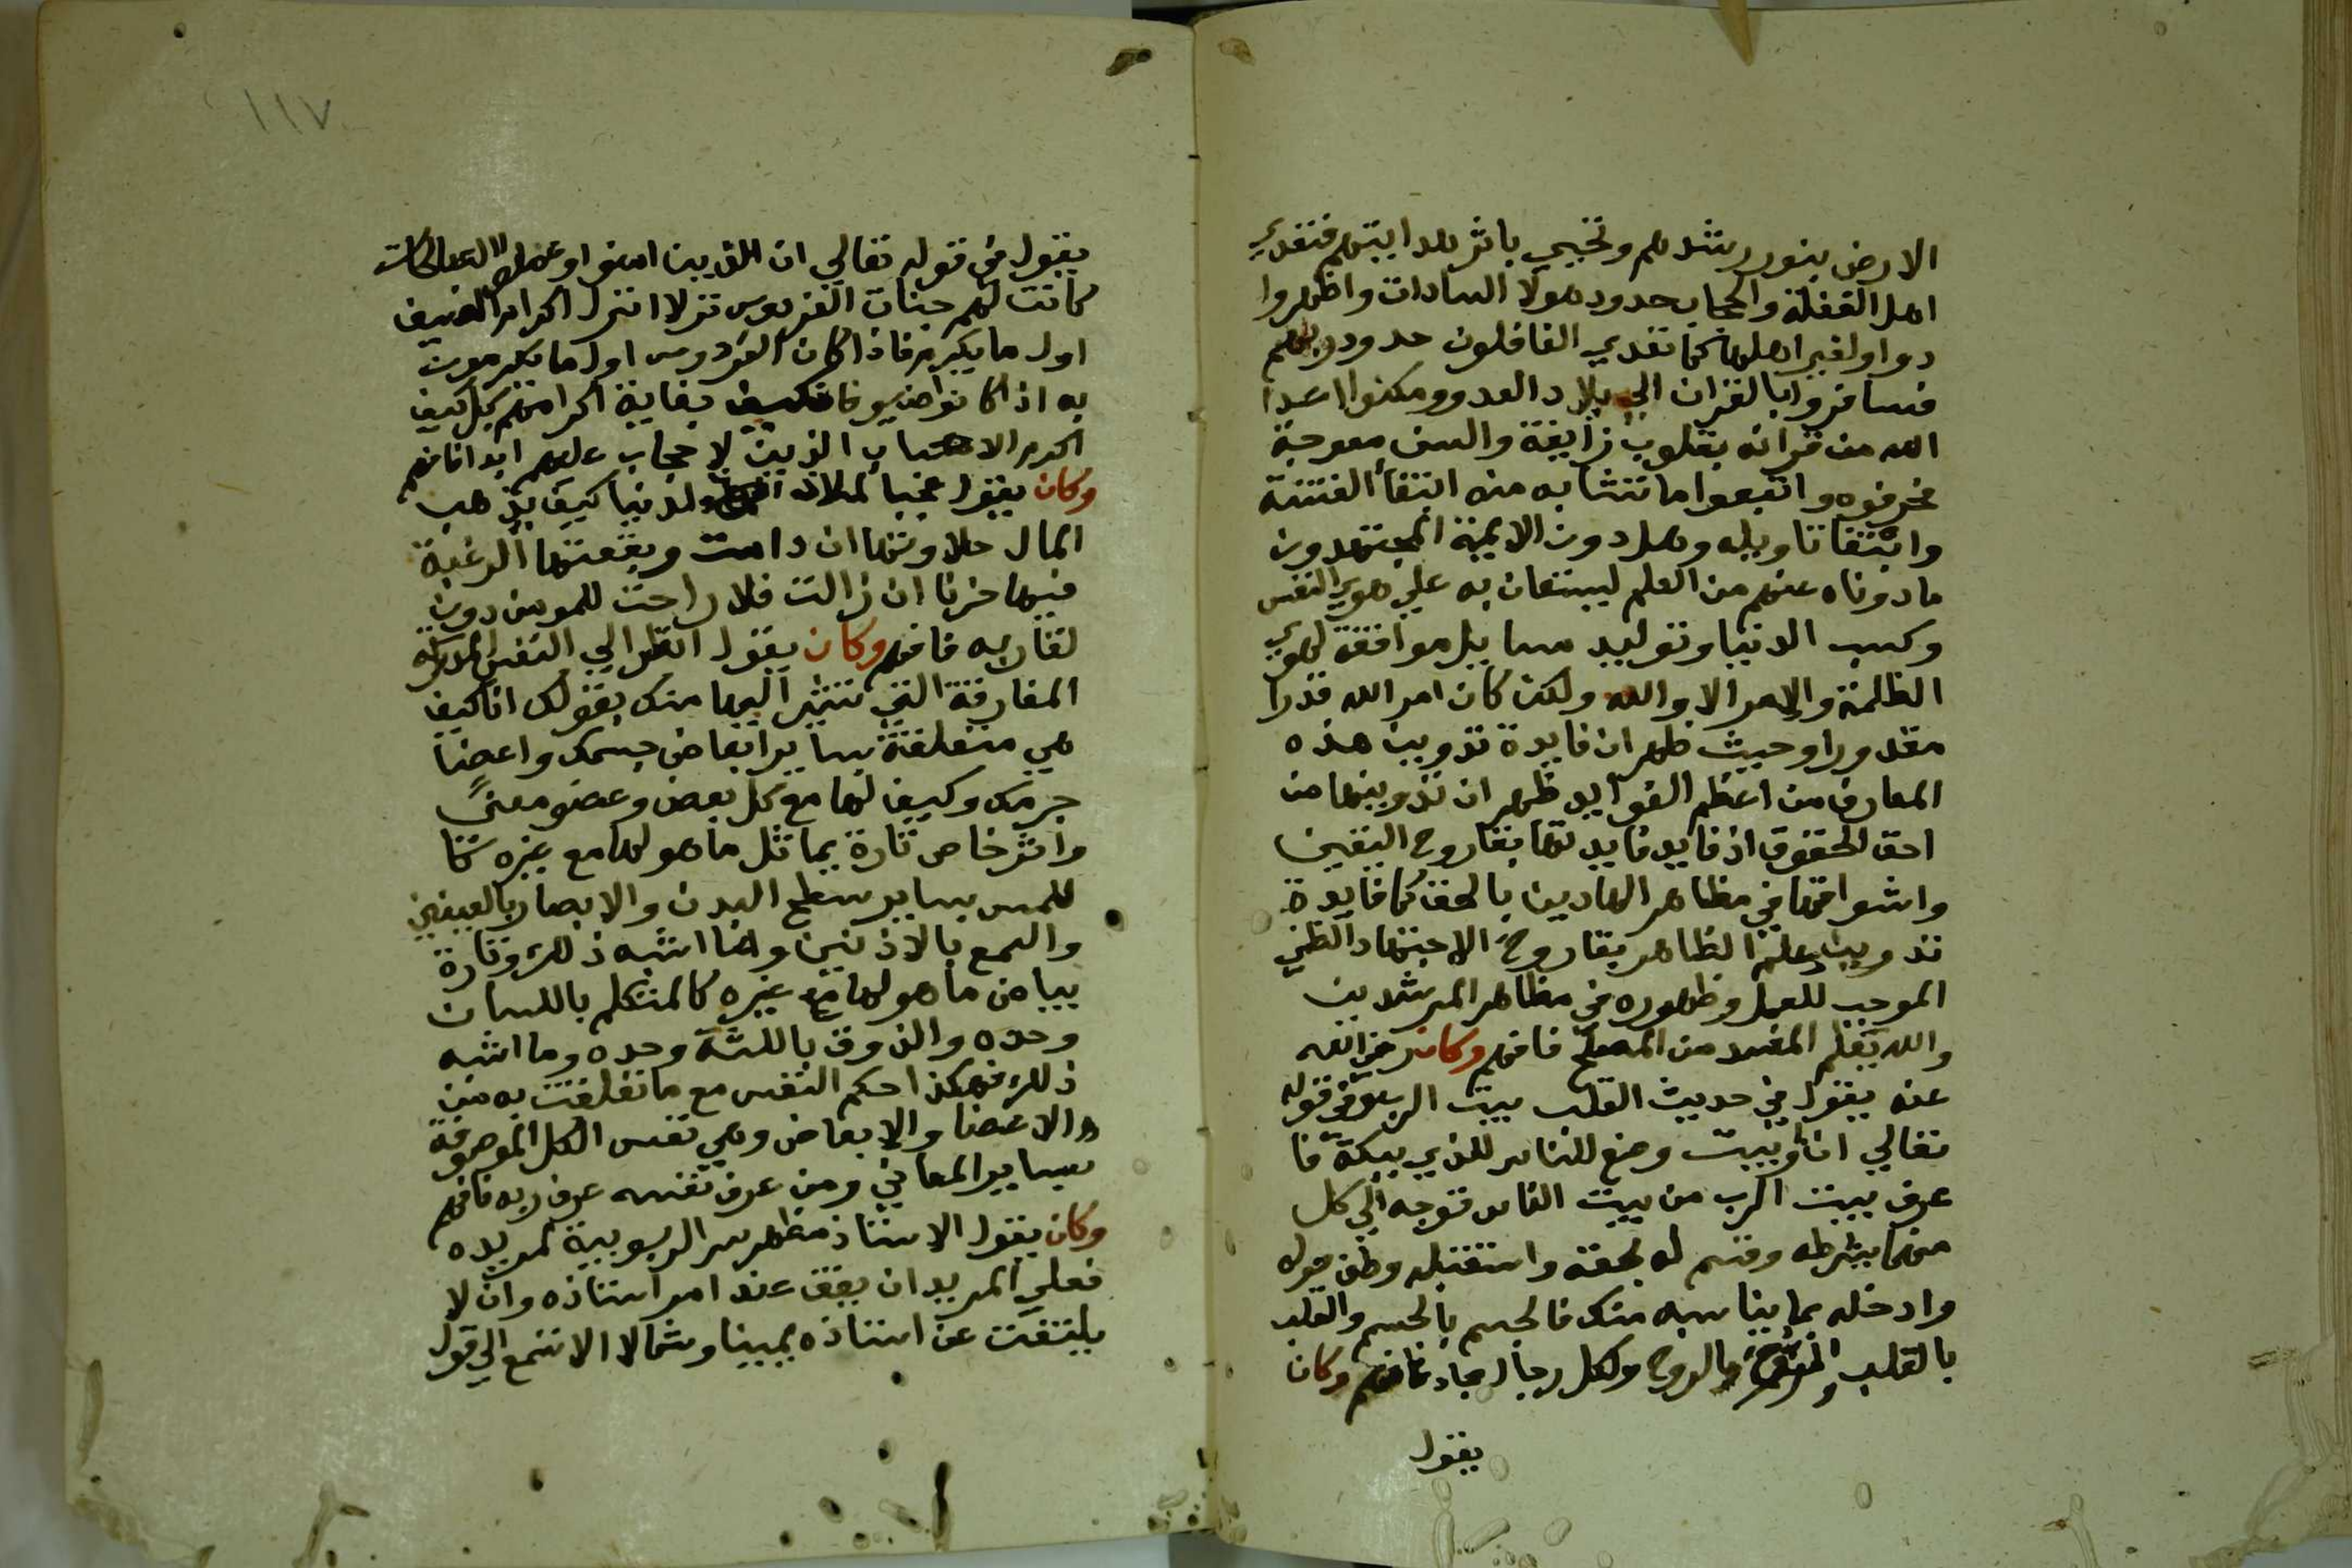 الارض بنور رشدهم وتحيي باثر هدايتهم فتعدي
اهل الغفلة والحجاب حدود هولا السادات واظهروا
دواولغير اهلها كما تعدي الغافلون حدود ربهم
فسافروا بالقران الي بلاد العدو ومكنوا اعدا
الله من قرانه بقلوب زايغة والسن معوجة
فحرفوه واتبعوا ما تشابه منه ابتغا الفتنة
وابتغا تاويله وهل دون الايمة المجتهدون
ما دوناه عنهم من العلم ليستعان به علي هوي النفس
وكسب الدنيا وتوليد مسايل موافقة لهوي
الظلمة والامرا لا والله ولكن كان امر الله قدرا
مقدورا وحيث ظهر ان فايدة تدوين هذه
المعارف من اعظم الفوايد ظهر ان تدوينها من
احق الحقوق اذ فايد فايدتها بقا روح اليقين
واشواقها في مظاهر الهادين بالحق كما فايدة
تدوين علم الظاهر بقا روح الاجتهاد الظني
الموجب للعمل وظهوره في مظاهر المرشدين
والله يعلم المفسد من المصلح فافهم وكان رضي الله
عنه يقول في حديث القلب بيت الرب وفي قوله
تعالي ان اول بيت وضع للناس للذي ببكة فا
عرف بيت الرب من بيت الناس فتوجه الي كل
منهما بشرطه وقسم له بحقه واستقبله وطف حوله
وادخله بما يناسبه منك فالجسم بالجسم والقلب
بالقلب والروح بالروح ولكل رجال مجاد فافهم وكان
يقول
١١٧
يقول في قوله تعالي ان الذين امنوا وعملوا الصالحات
كانت لهم جنات الفردوس نزلا انزل اكرام الضيف
اول ما يكرم فاذا كان الفردوس اول ما يكرمون
به اذا كانوا ضيوفا فكيف بغاية اكرامهم بل كيف
اكرم الاحباب الذين لا حجاب عليهم ابدا فافهم
وكان يقول عجبا لملاذ الدنيا كيف يذهب
المال حلاوتها ان دامت ويعقبها الرغبة
فيها حزنا ان زالت فلا راحت للمومن دون
لقا ربه فافهم وكان يقول انظر الي النفس المدركة
المفارقة التي تشير اليها منك بقولك انا كيف
هي متعلقة بساير ابعاض جسمك واعضا
جرمك وكيف لها مع كل بعض وعضو معني
واثر خاص تارة يماثل ما هو لها مع غيره كا
للمس بساير سطح البدن والابصار بالعينين
والسمع بالاذنين وما اشبه ذلك وتارة
يباين ما هو لها مع غيره كالمتكلم باللسان
وحده والذوق باللثة وحده وما اشبه
ذلك فهكذا حكم النفس مع ما تعلقت به من
الاعضا والابعاض وهي نفس الكل الموصوفة
بساير المعاني ومن عرف نفسه عرف ربه فافهم
وكان يقول الاستاذ مظهر سر الربوبية لمريده
فعلي المريد ان يقف عند امر استاذه وان لا
يلتفت عن استاذه يمينا وشمالا الا تسمع الي قول